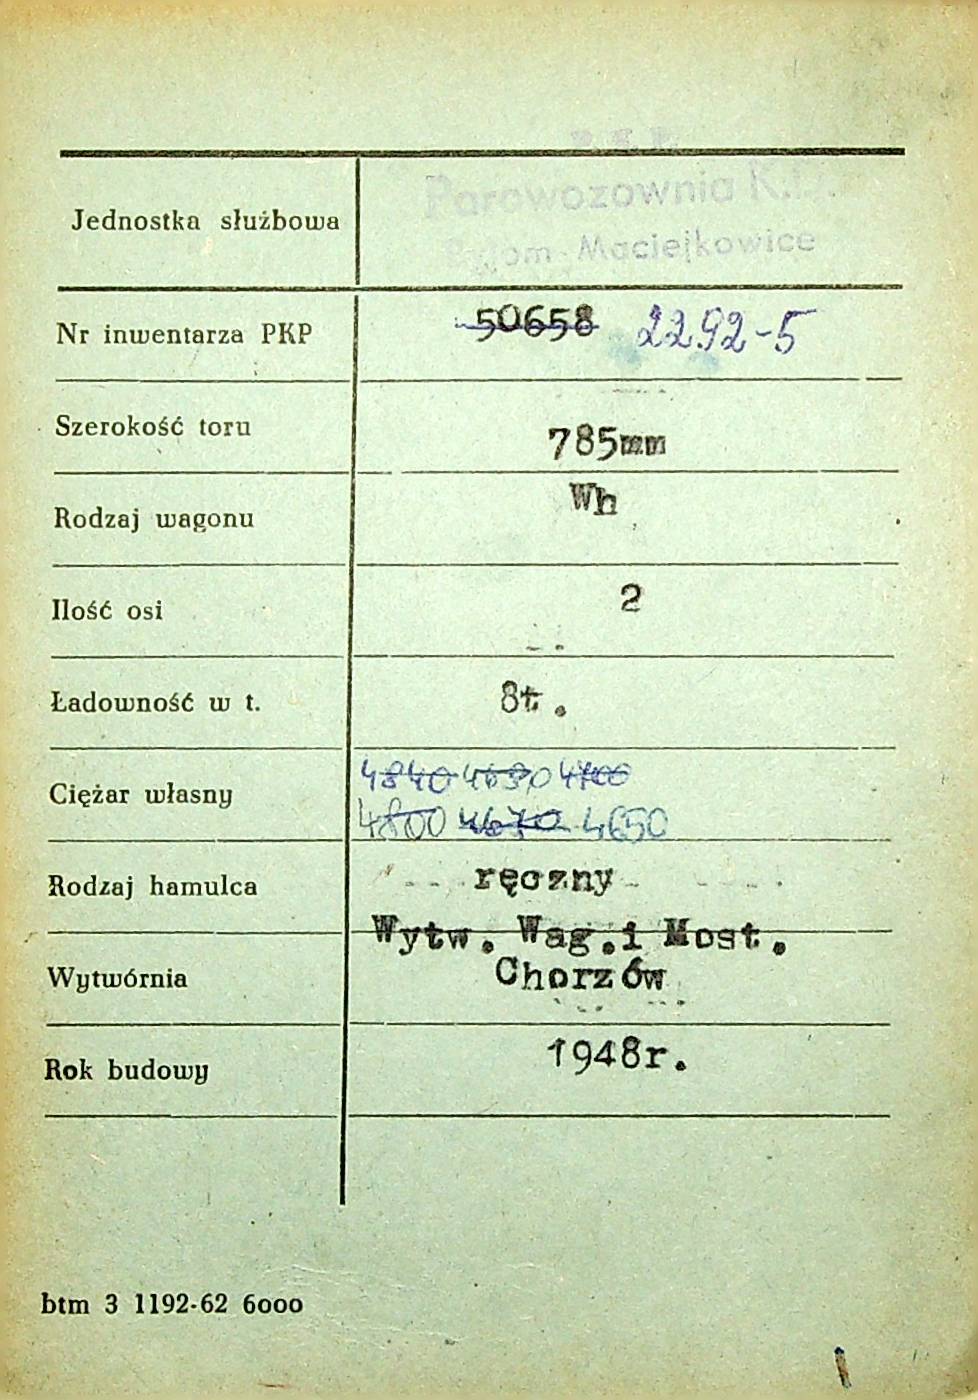 P. K. P.
Parowozownia K.D.
Jednostka służbowa
Bytom Maciejkowice
Nr inwentarza PKP 50658 2292-5
Szerokość toru 785mm
Rodzaj wagonu Wh
Ilość osi 2
Ładowność w t. 8t.
4840 4680 4700
Ciężar własny
4800 4670 4650
Rodzaj hamulca ręczny
Wytw. Wag.i Most.
Wytwórnia Chorzów
Rok budowy 1948r.
btm 3 1192-62 6000